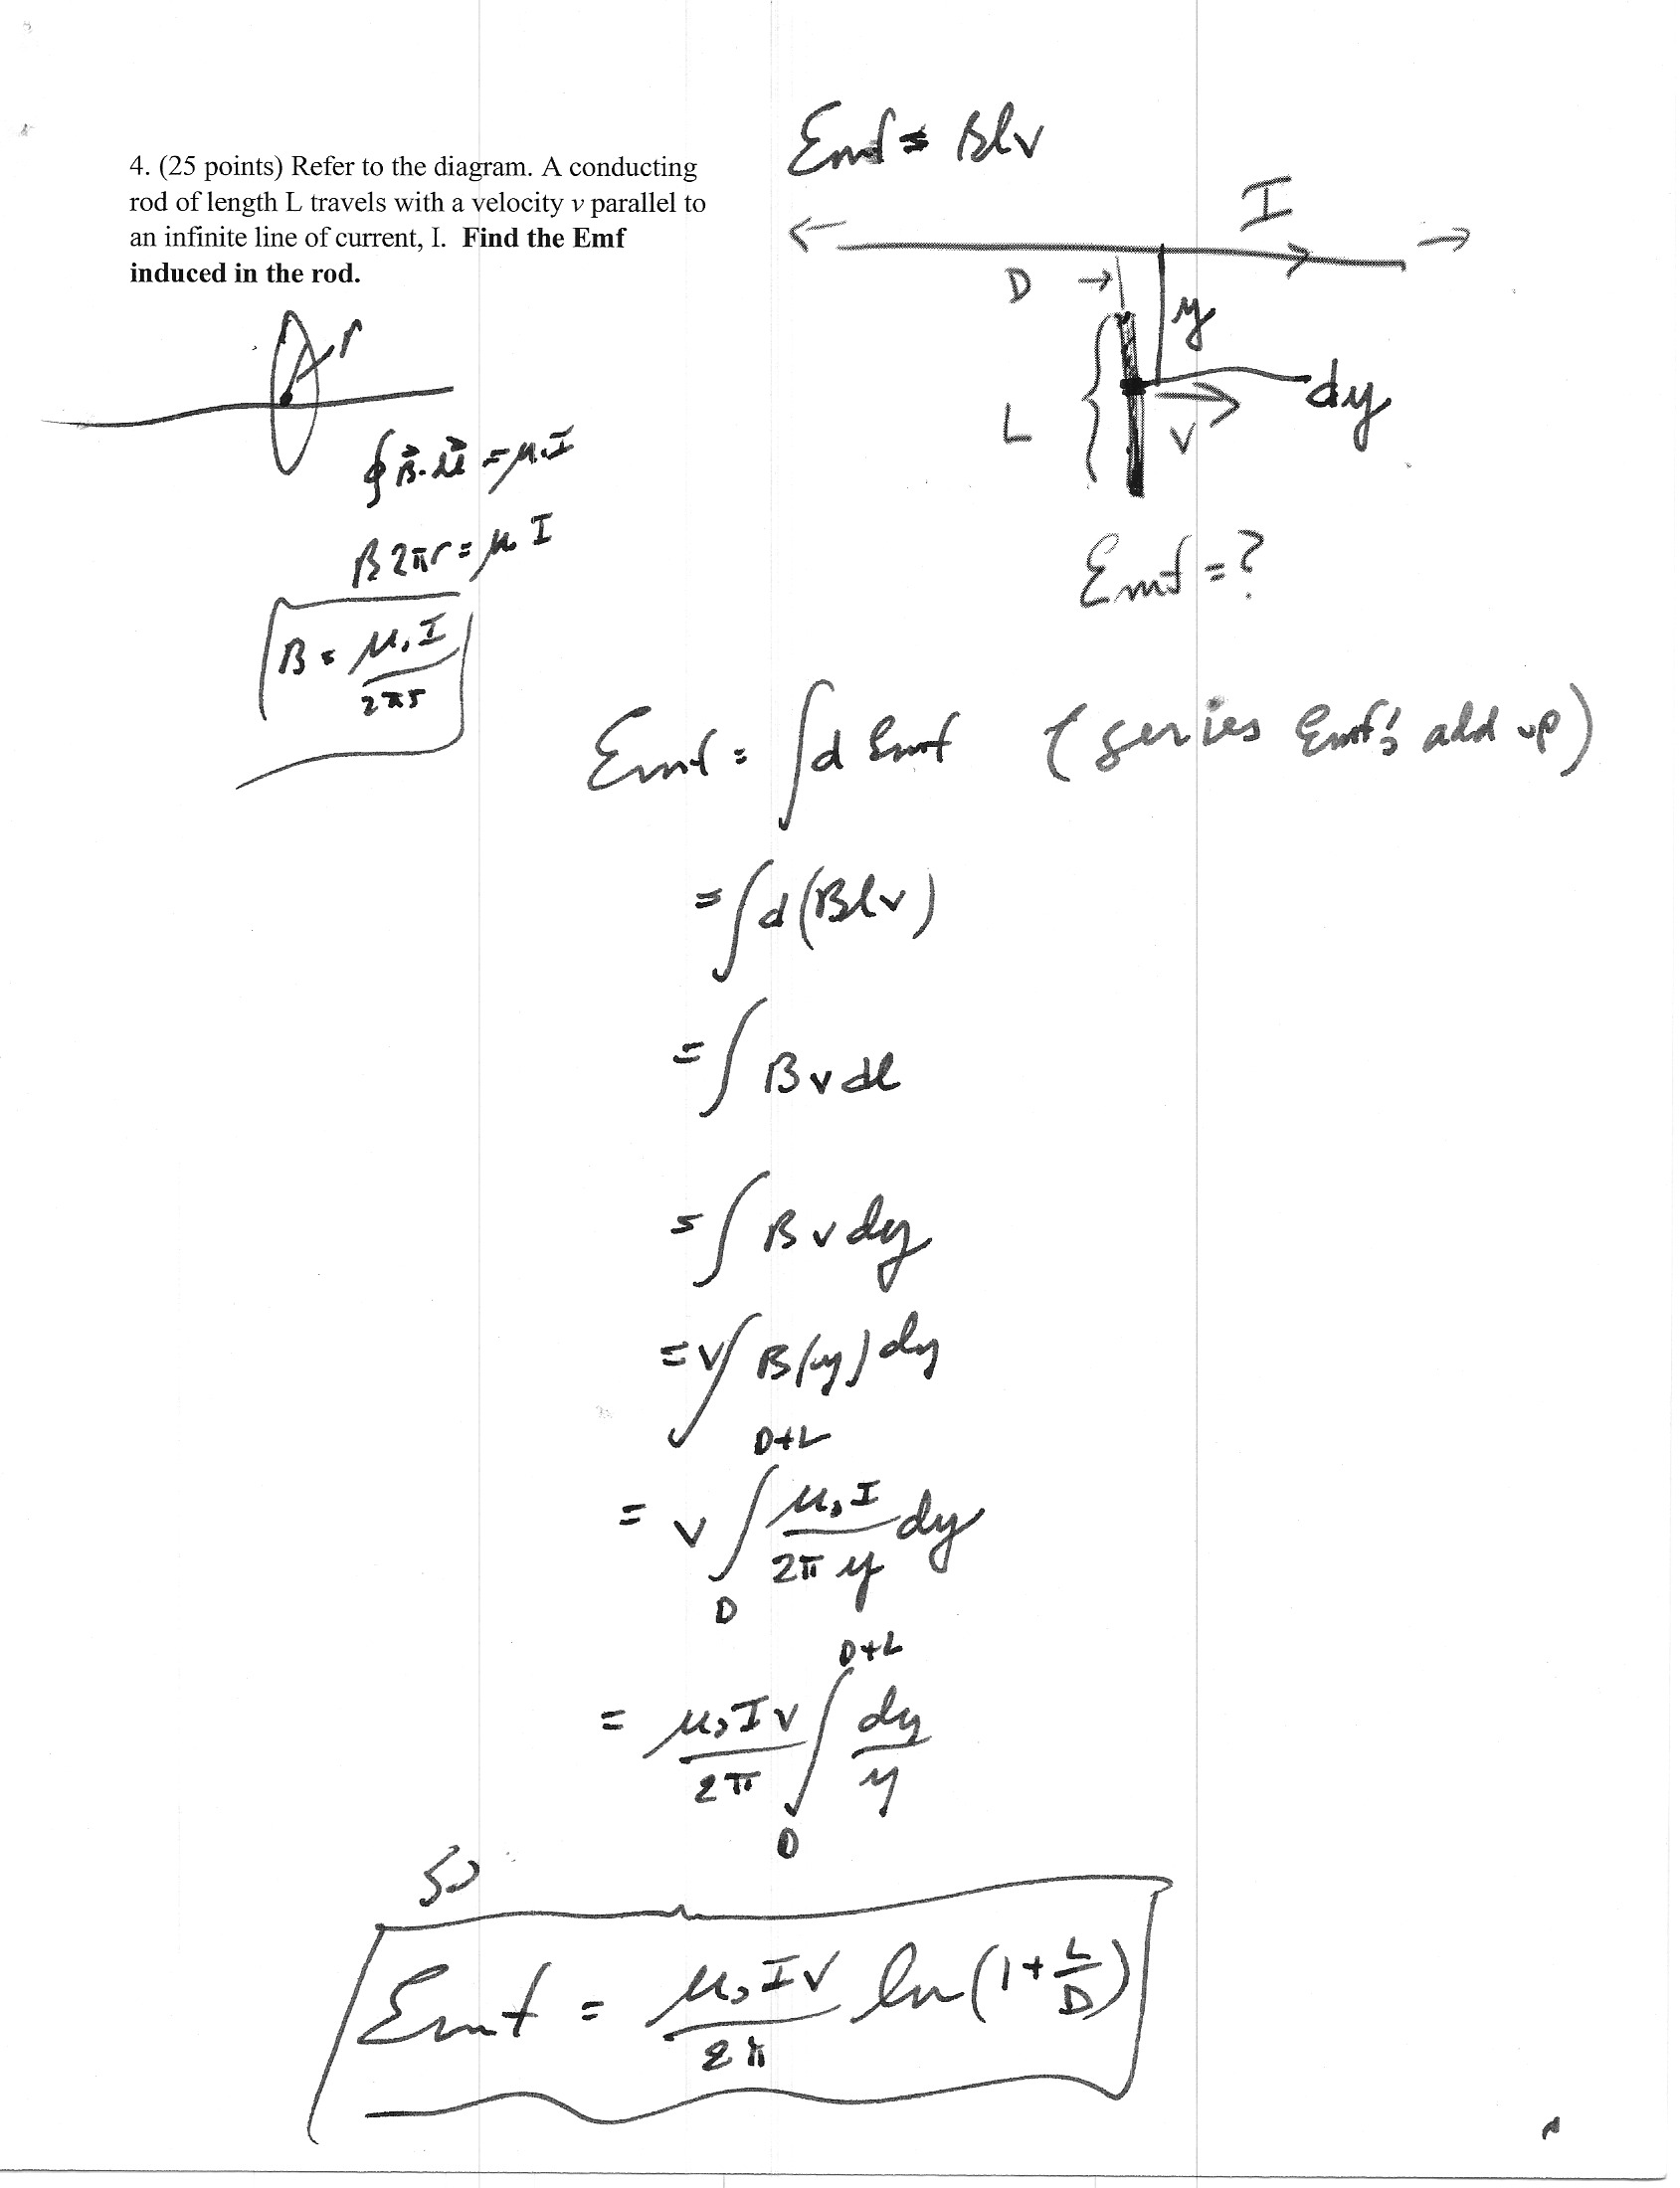 Emf = Blv
4. (25 points) Refer to the diagram. A conducting
rod of length L travels with a velocity v parallel to
an infinite line of current, I. Find the Emf
induced in the rod.
I
D
y
dy
L
v
Emf = ?
r
∮ B⃗ · dl⃗ = μ₀I
B 2πr = μ₀ I
B = μ₀I / 2πr
Emf = ∫ d Emf (series Emf's add up)
= ∫ d(Blv)
= ∫ B v dl
= ∫ B v dy
= v ∫ B(y) dy
= v ∫_D^{D+L} μ₀I / 2πy dy
= μ₀Iv / 2π ∫_D^{D+L} dy / y
so
Emf = μ₀Iv / 2π ln(1 + L/D)